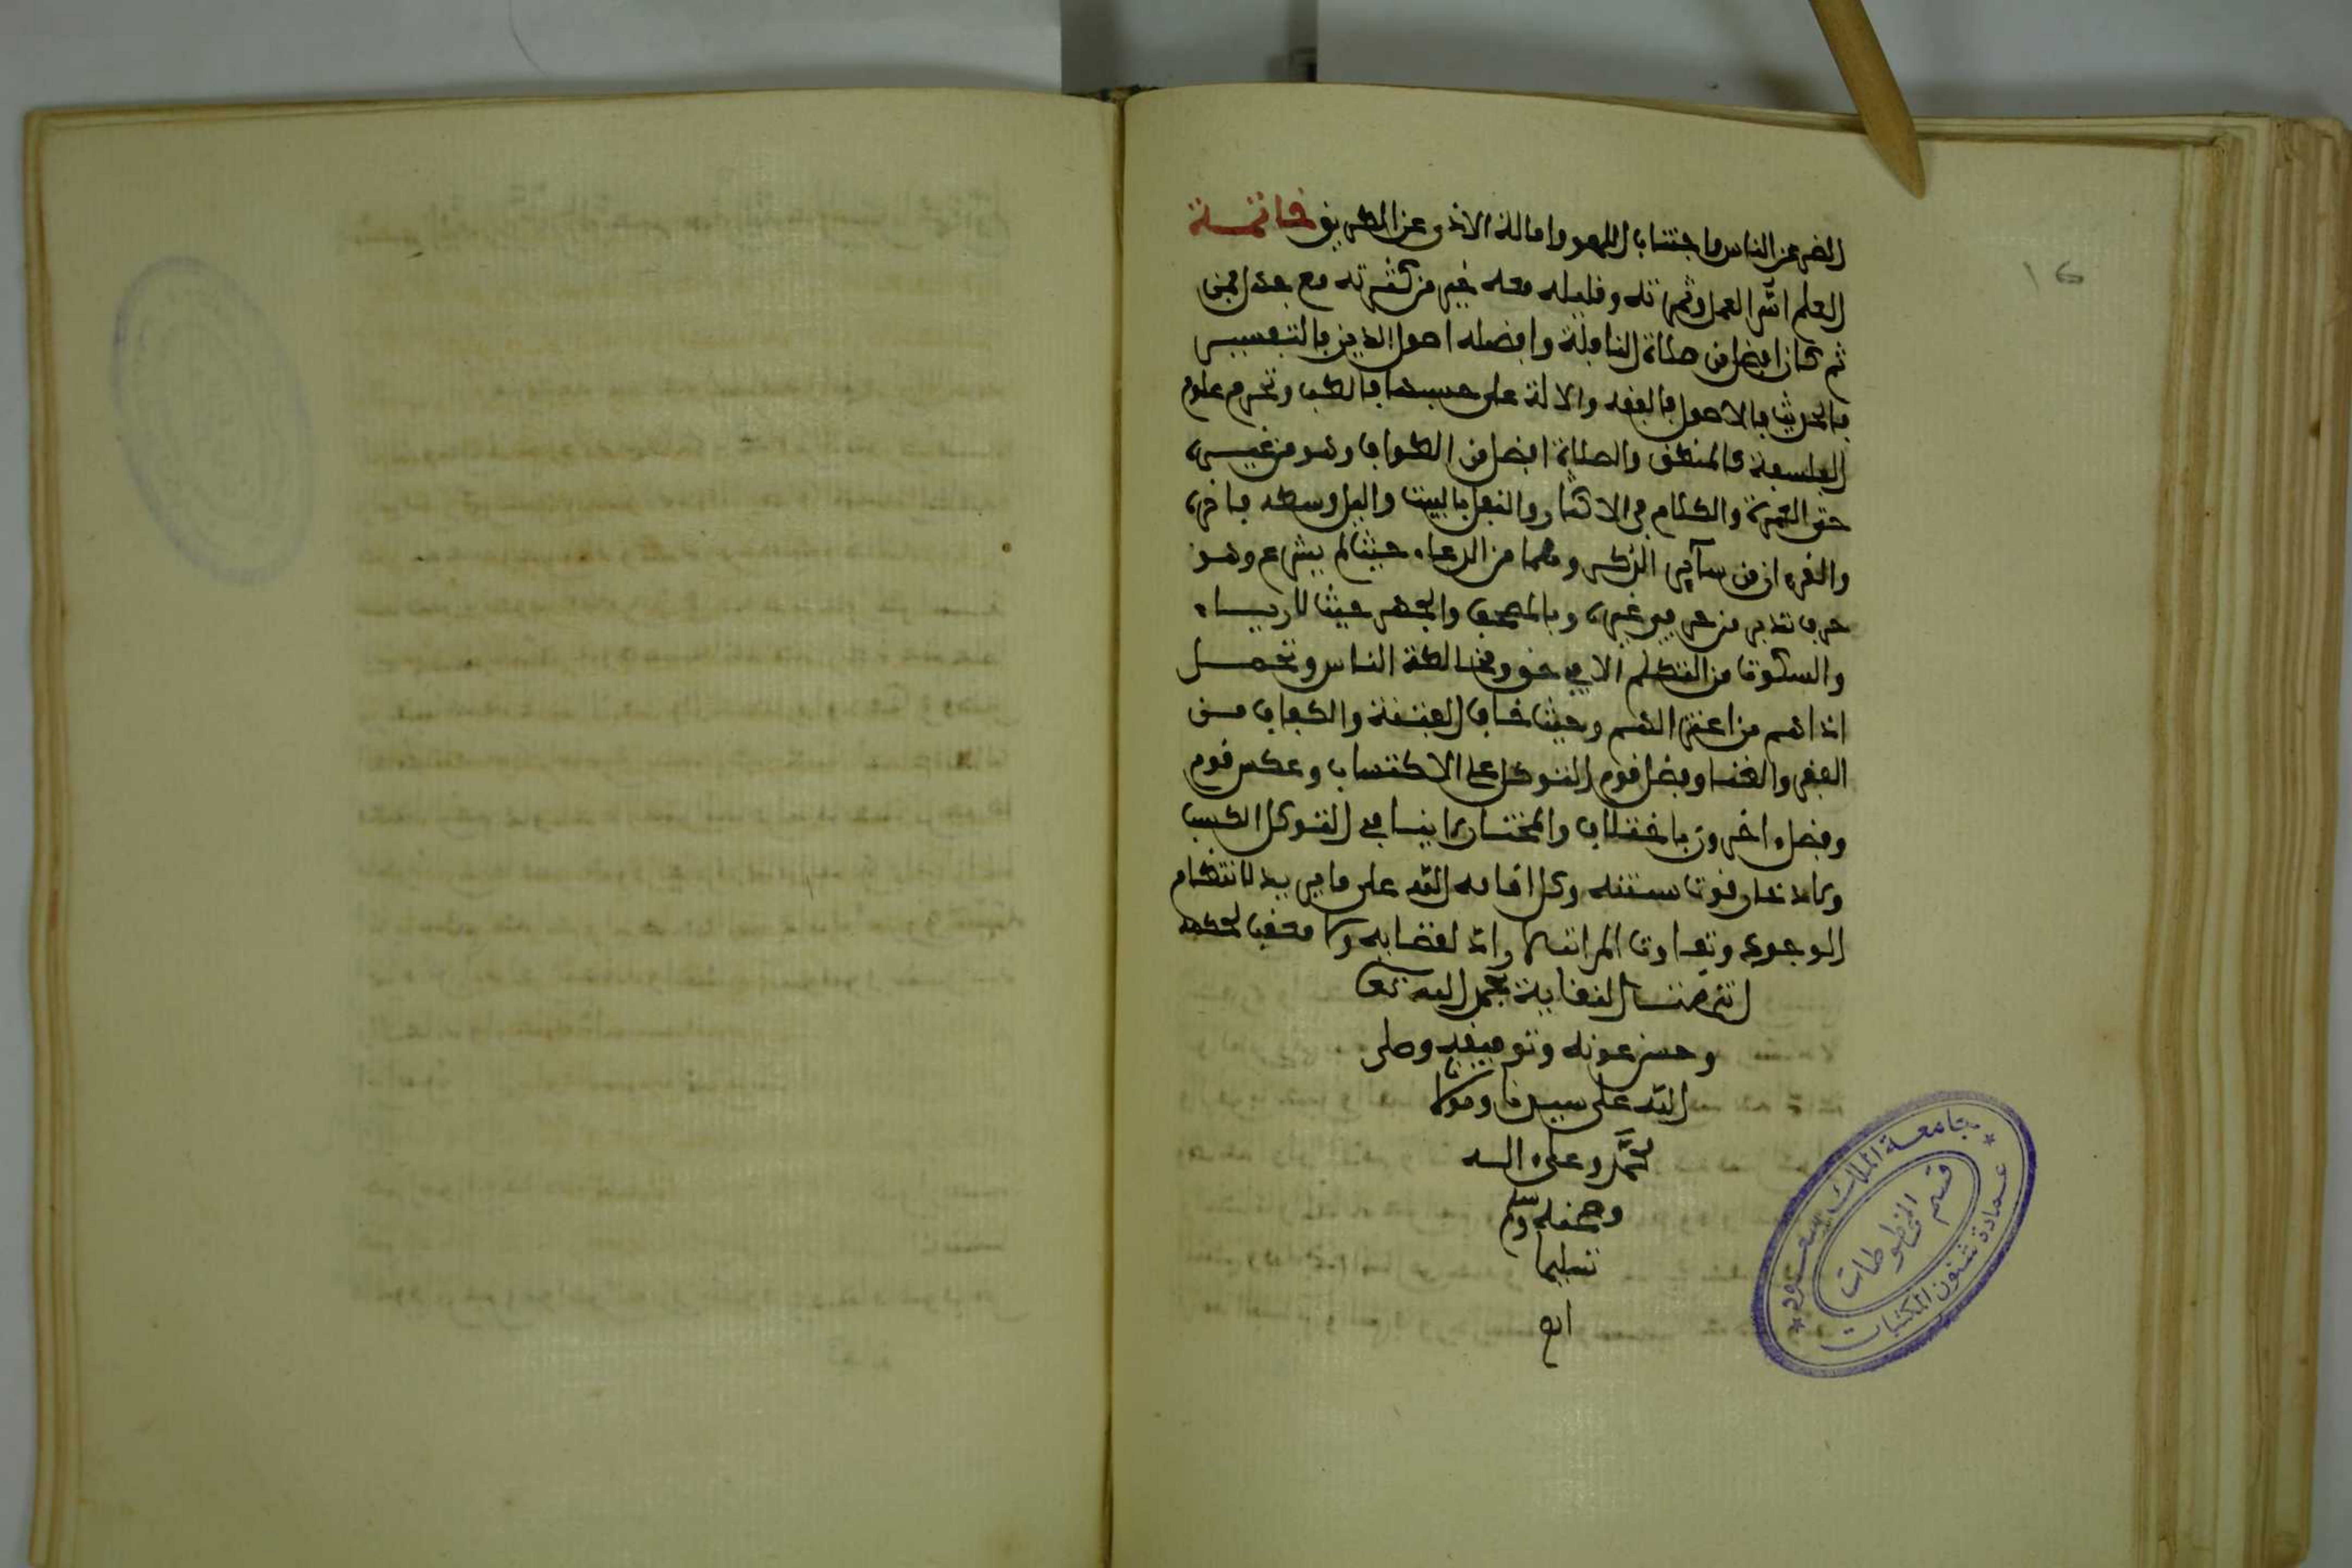 الضر عن الناس واجتناب اللهو واماطة الاذى عن الطريق خاتمة
العلم اس العمل وثمرته وقليله معه خير من كثرته مع جهل فمن
ثم كان افضل من صلاة النافلة وافضله اصول الدين فالتفسير
فالحديث فالاصول فالفقه والالة على حسبها فالطب وتحرم علوم
الفلسفة كالمنطق والصلاة افضل من الطواف وهو من غيره
حتى العمرة والكلام في الاكثار والنفل بالبيت واليل وسطه فاخره
والقرءان من سآير الذكر وهما من الدعاء حيث لم يشرع وهو
حرف تدبر من حرفي غيره وبالمصحف والجهر حيث لا رياء
والسكوت من التكلم الا في حق ومخالطة الناس وتحمل
اذاهم من اعتزالهم وحيث خاف الفتنة والكفاف من
الفقر والغنا وفضل قوم التوكل على الاكتساب وعكس قوم
وفضل ءاخرون باختلاف والمختار لا ينافي التوكل الكسب
ولا ادخار قوت سنته وكل اقامه الله على ما يريد لانتظام
الوجود وتفاوت المراتب لا راد لقضايه ولا معقب لحكمه
انتهت النقاية بحمد الله تعا
وحسن عونه وتوفيقه وصلى
الله على سيدنا ومولانا
محمد وعلى اله
وصحبه وسلم
تسليما
اه
16
جامعة الملك سعود
قسم المخطوطات
عمادة شئون المكتبات